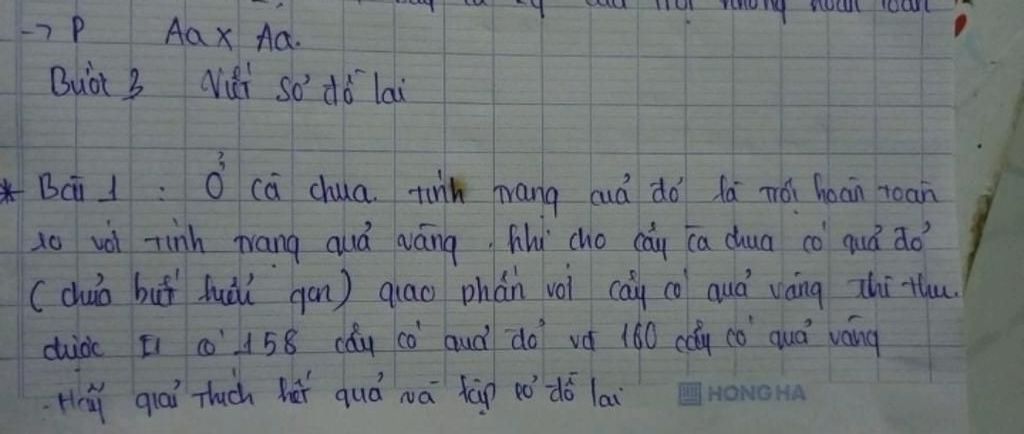 trội không hoàn toàn
→ P Aa x Aa.
Bước 3 Viết sơ đồ lai
* Bài 1 : Ở cà chua tính trạng quả đỏ là trội hoàn toàn
so với tính trạng quả vàng. Khi cho cây cà chua có quả đỏ
(chưa biết kiểu gen) giao phấn với cây có quả vàng thì thu
được F1 có 158 cây có quả đỏ và 160 cây có quả vàng
- Hãy giải thích kết quả và lập sơ đồ lai
HONG HA